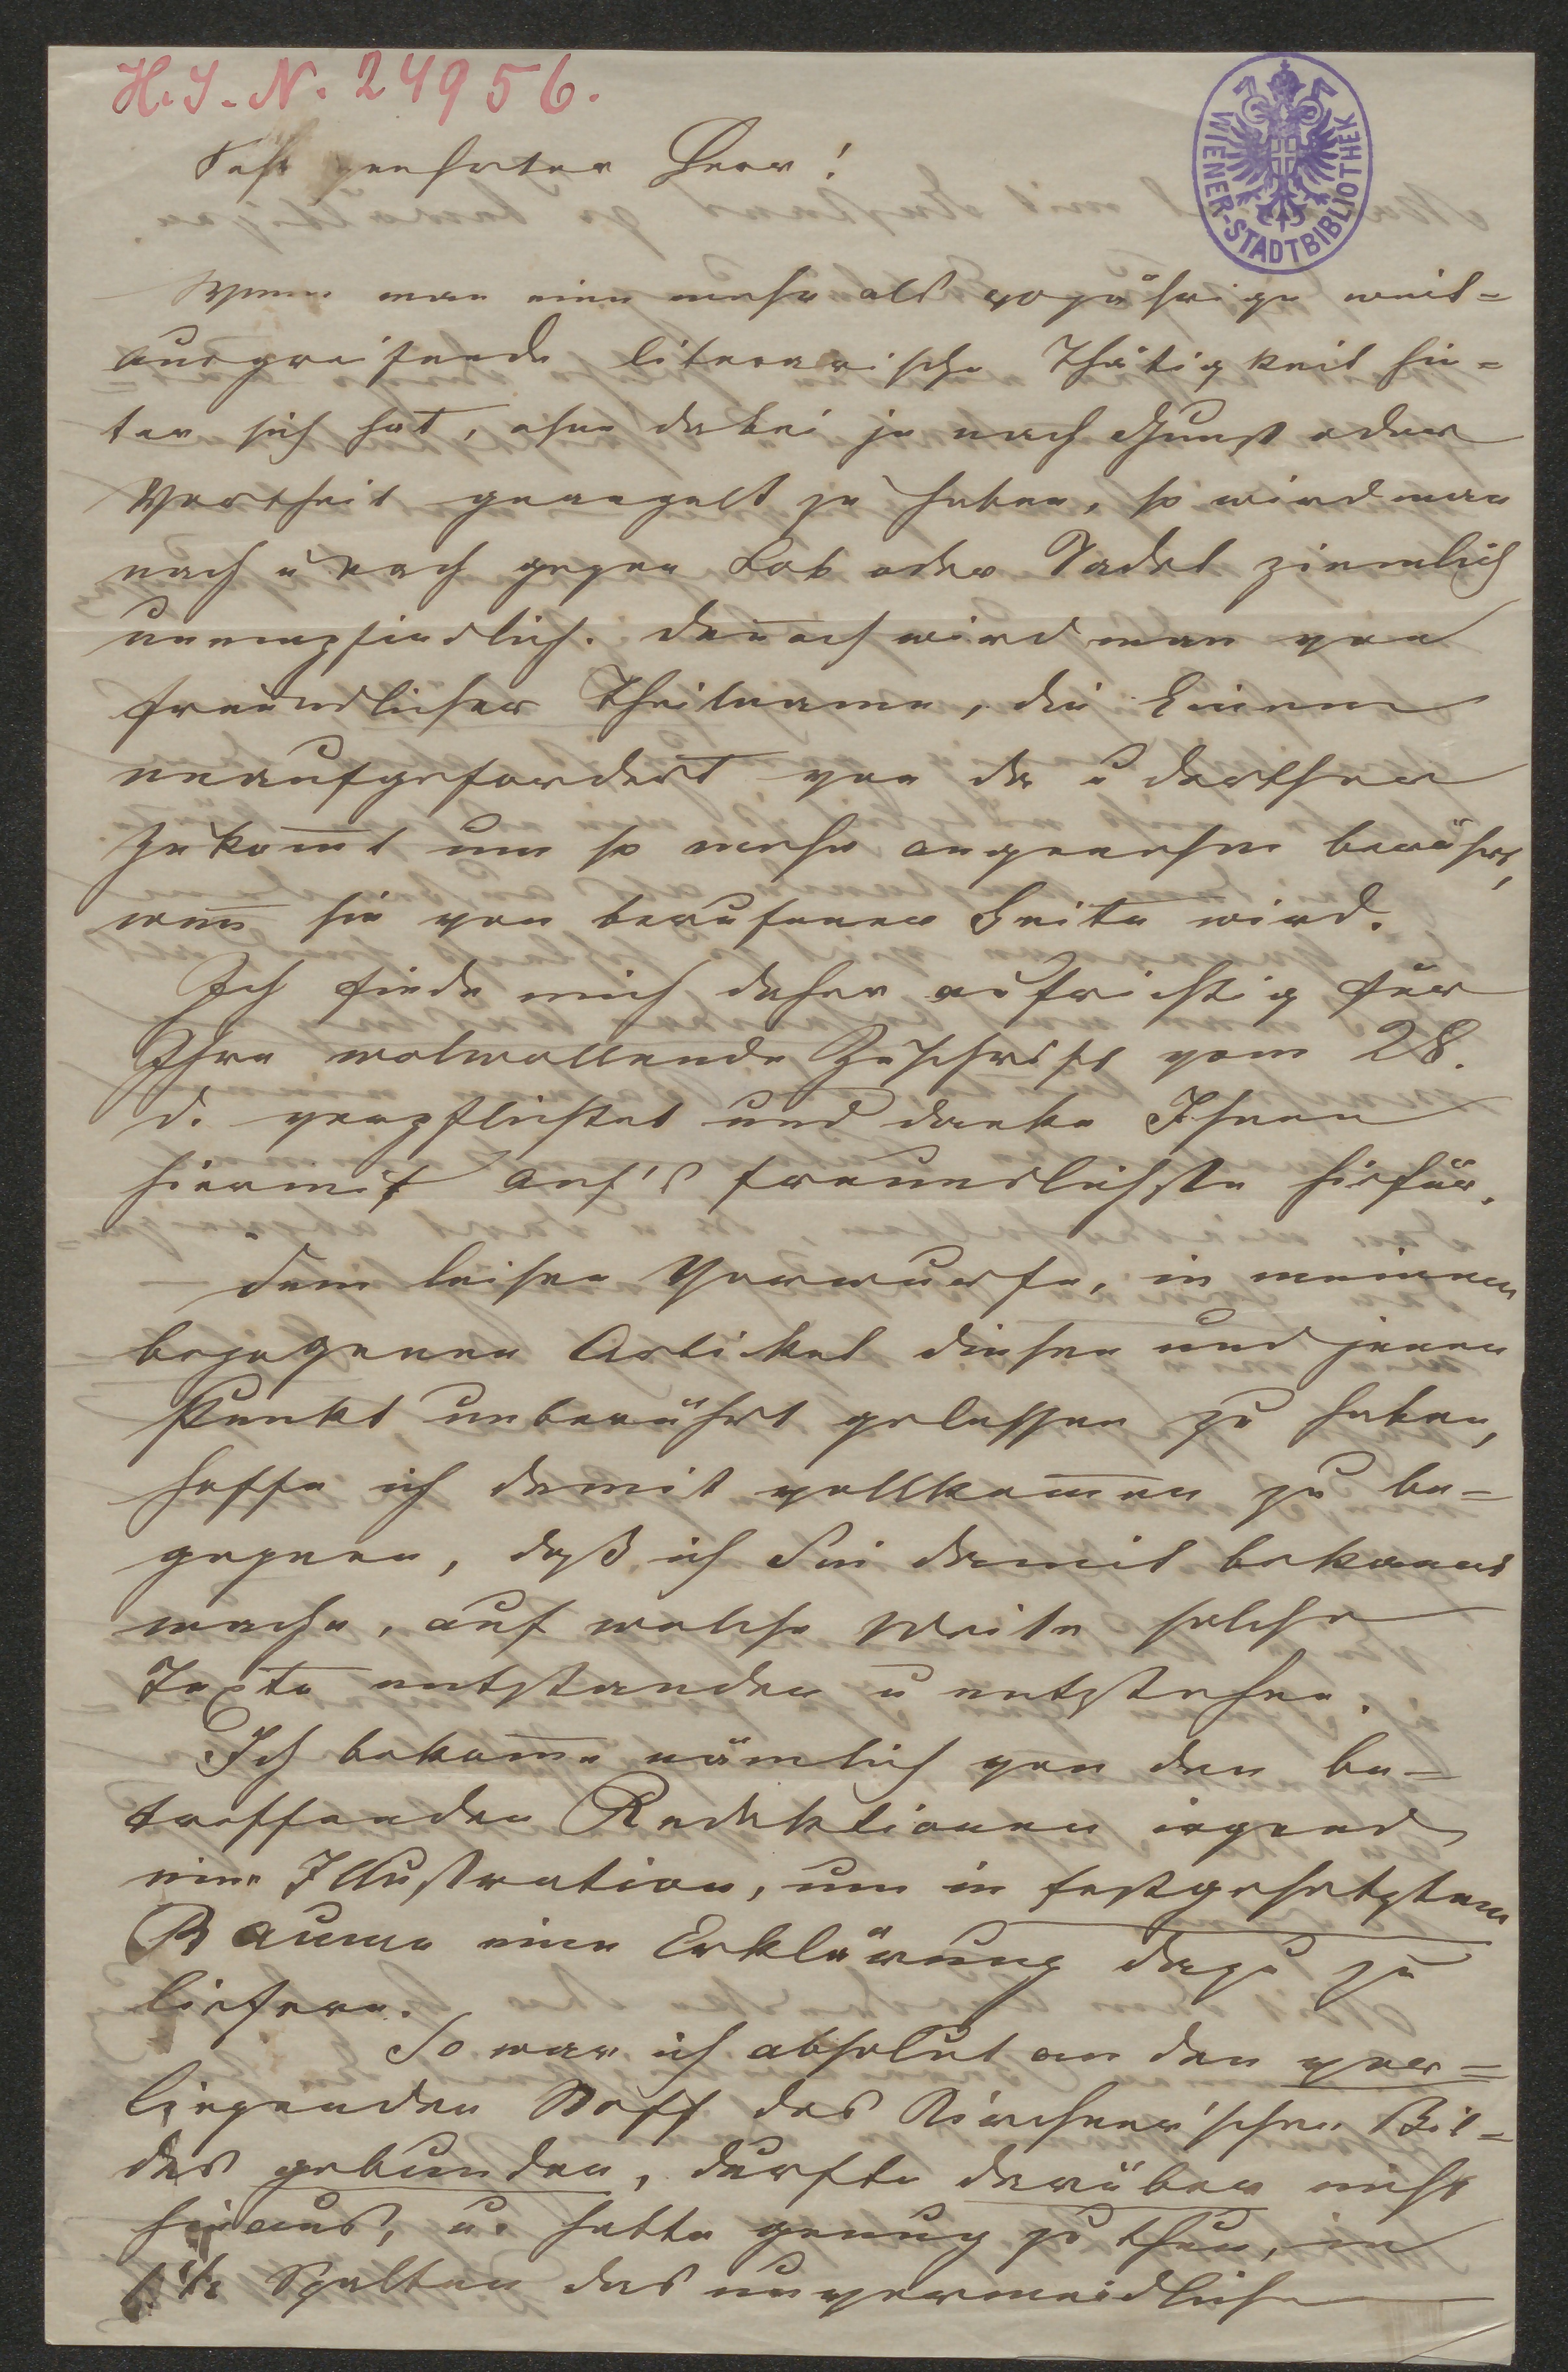 H. I. N. 24956.
WIENER-STADTBIBLIOTHEK
Sehr geehrter Herr!
Wenn man eine mehr als 40jährige weit-
ausgreifende literarische Thätigkeit hin-
ter sich hat, ohne dabei je nach Gunst oder
Vortheil geangelt zu haben, so wird man
nach u nach gegen Lob oder Tadel ziemlich
unempfindlich. Dennoch wird man von
freundlicher Theilname, die Einem
unaufgefordert von da u dorther
zukom̅t um so mehr angenehm berührt,
wen̅ sie von berufener Seite wird.
Ich finde mich daher aufrichtig für
Ihre wolwollende Zuschrift vom 28.
d. verpflichtet und danke Ihnen
hiermit auf's freundlichste hiefür.
Dem leisen Vorwurfe, in meinem
bezogenen Artikel diesen und jenen
Punkt unberührt gelassen zu haben,
hoffe ich damit vollkom̅en zu be-
gegnen, daß ich Sie damit bekannt
mache, auf welche Weise solche
Texte entstanden u entstehen.
Ich bekom̅e nämlich von den be-
treffenden Redaktionen irgend
eine Illustration, um in festgesetztem
Raume eine Erklärung dazu zu
liefern.
So war ich absolut an den vor-
liegenden Stoff des Kirchner'schen Bil-
des gebunden, durfte darüber nicht
hinaus, u. hatte genug zu thun, in
1 1/2 Spalten das unvermeidliche